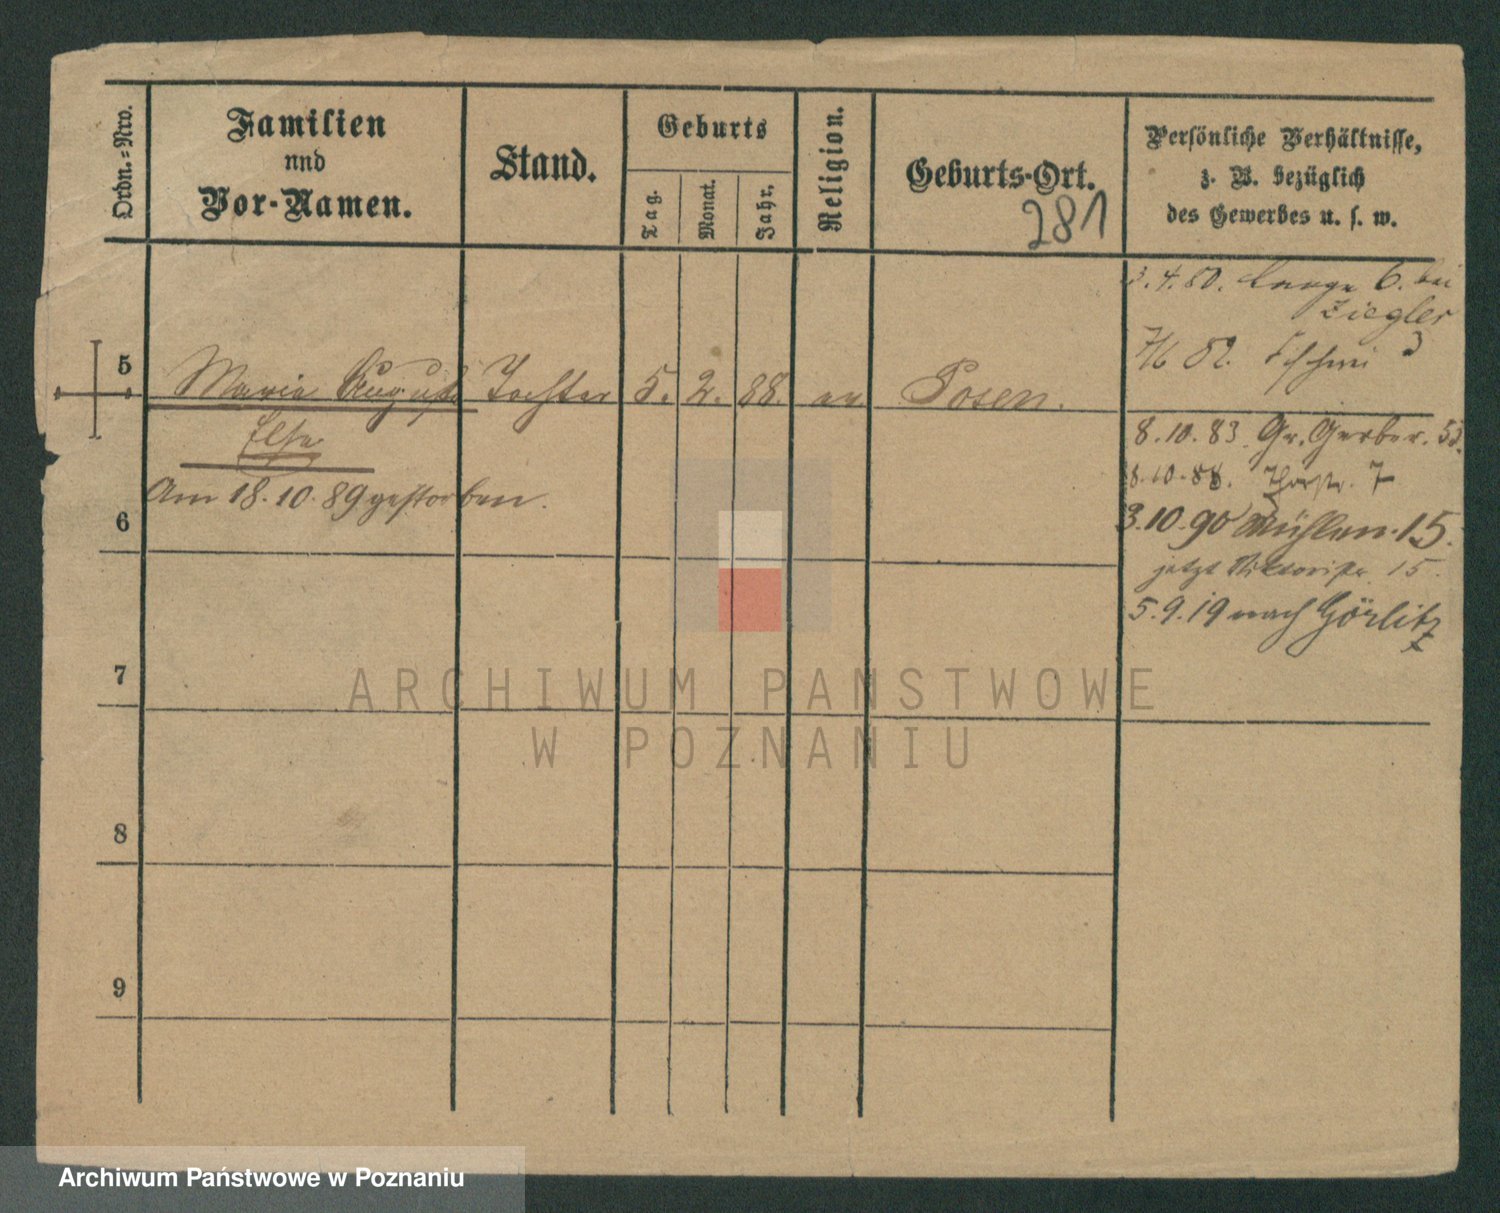 Ordn.=Nro.
Familien
nnd
Vor-Namen.
Stand.
Geburts
Tag.
Monat.
Jahr.
Religion.
Geburts-Ort.
281
Persönliche Verhältnisse,
z. B. bezüglich
des Gewerbes u. s. w.
3.4.80. Lange 6. bei
Ziegler
82. 3
5 Maria August Tochter 5. 2. 88. ev Posen.
Else
8.10.83 Gr. Gerber. 53.
8.10.88. Thorstr. 7
Am 18.10.89 gestorben.
6
3.10.90 Mühlen. 15.
jetzt Viktoriastr. 15.
5.9.19 nach Görlitz
7
8
9
ARCHIWUM PAŃSTWOWE
W POZNANIU
Archiwum Państwowe w Poznaniu